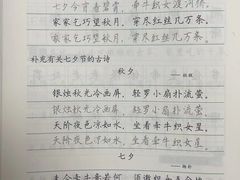 七夕今宵看碧霄，牵牛织女渡河桥，
家家乞巧望秋月，穿尽红丝几万条。
家家乞巧望秋月，穿尽红丝几万条。
补充有关七夕节的古诗
秋夕
银烛秋光冷画屏，轻罗小扇扑流萤。
银烛秋光冷画屏，轻罗小扇扑流萤。
天阶夜色凉如水，坐看牵牛织女星。
天阶夜色凉如水，坐看牵牛织女星。
七夕